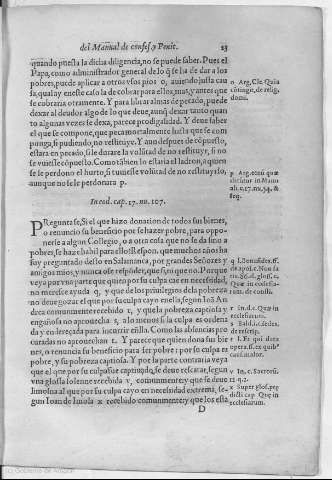 del Manual de confes. y Penit. 25
quando puesta la dicha diligencia, no se puede saber. Pues el
Papa, como administrador general de lo q̃ se ha de dar a los
pobres, puede aplicar a otros vsos pios o, auiendo justa cau
sa, qual ay en este caso
se cobraria otramente. Y para librar almas de pecado, puede
dexar al deudor algo de lo que deue, aunq̃ dexar tanto quan
to algunas vezes se dexa, parece prodigalidad. Y deue saber
el que se compone, que peca mortalmente
ponga, si pudiendo, no restituye. Y aun despues de cõpuesto,
estara en pecado, si le durare la volũtad de no restituyr, si no
se viesse cõpuesto. Como tãbien lo estaria el ladron, a quien
se le perdono el hurto, si tuuiesse volũtad de no restituyrlo,
aunque no se le perdonara p.
o Arg. Cle. Quia
cõtingit, de relig.
domi.
p Arg. eorũ quæ
in Manu
ali c. 17. nu. 54. &
seq.
In eod. cap. 17. nu. 107.
PRegunta se, Si el que hizo donation de todos sus bienes,
o renuncio su beneficio por se hazer pobre, para oppo-
nerse a algun Collegio, o a otra cosa que no se da sino a
pobres, se haze habil para ello? Respon. que muchos años ha
fuy preguntado desto en Salamanca, por grandes Señores y
amigos mios, y nunca ose respõder, que si, ni que no. Porque
veya por vna parte que quien por su culpa cae en necessidad,
no meresce ayuda q, y que de los priuilegios de los pobres
no deue gozar el que por su culpa cayo en ella, segun Ioã An
drea comunmente recebido r, y que la pobreza captiosa y
engañosa no aprouecha s, alo menos si la culpa es ordena
da y endereçada para incurrir en ella. Como las absencias pro
curadas no aprouechan t. Y parece que quien dona sus bie
nes, o renuncia su beneficio para ser pobre: por su culpa es
pobre, y su pobreza captiosa. Y por la parte contraria veya
que el que por su culpa fue captiuado, se deue rescatar, segun
vna glosa solenne recebida v, comunmente y que se deue
limosna al que por su culpa cayo en necesidad extrema, se-
gun Ioan de Imola x recebido comunmente y que los esta
q
de apol. c. Non sa
tis. 86. d. glos. c.
Quæ in ecclesia-
rum. de consti.
r In. d. c. Quæ in
ecclesiarum.
s Bald. i. c. sedes.
de rescrip.
t
opera. ff. ex quib.
caus. maior.
v In. c. Sacrorũ.
12. q. 2.
x Super glos. præ
dicti cap Quæ in
ecclesiarum.
D